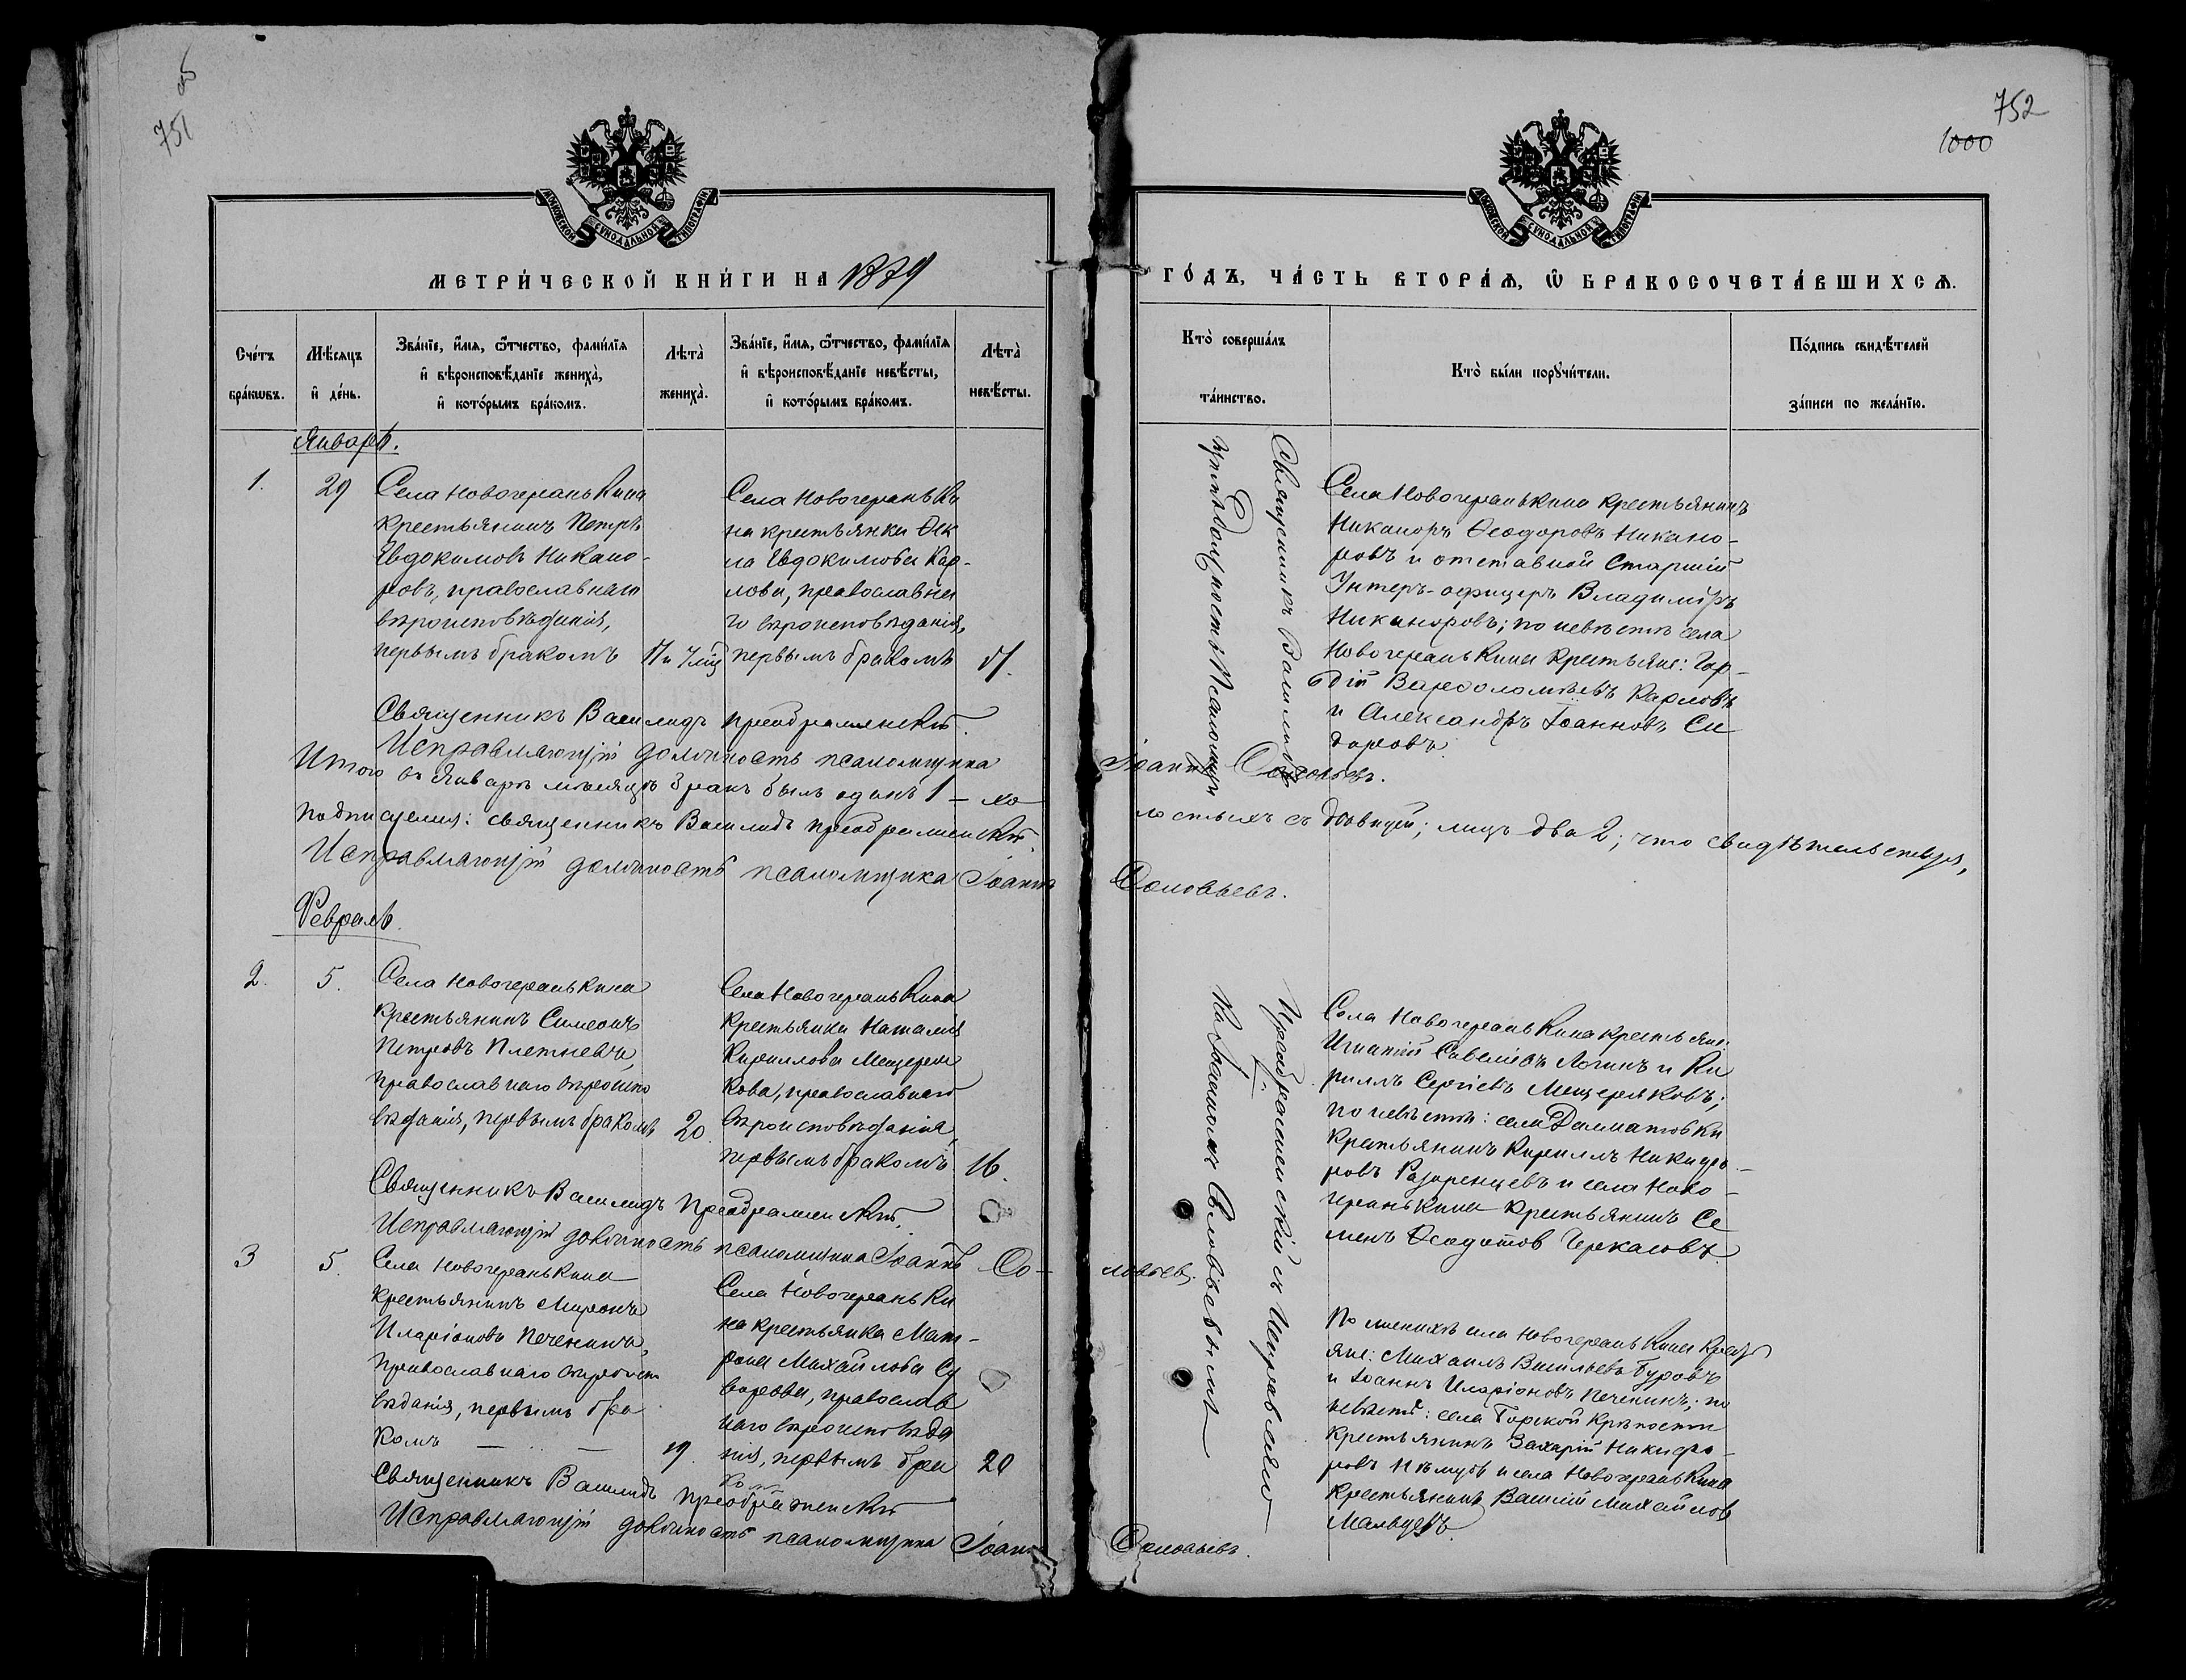 751
752
1000
МОСКОВСКОЙ СУНОДАЛЬНОЙ ТИПОГРАФІИ
МОСКОВСКОЙ СУНОДАЛЬНОЙ ТИПОГРАФІИ
МЕТРИ́ЧЕСКОЙ КНИ́ГИ НА 1879
ГО́ДЪ, ЧА́СТЬ ВТОРА́Ѧ, Ѡ҆ БРАКОСОЧЕТА́ВШИХСѦ.
Сче́тъ
бра́кѡвъ.
Мѣ́сѧцъ
и҆ де́нь.
Зва́нїе, и҆́мѧ, ѻ҆́тчество, фами́лїѧ
и҆ вѣроисповѣ́данїе жениха̀,
и҆ кото́рымъ бра́комъ.
Лѣта̀
жениха̀.
Зва́нїе, и҆́мѧ, ѻ҆́тчество, фами́лїѧ
и҆ вѣроисповѣ́данїе невѣ́сты,
и҆ кото́рымъ бра́комъ.
Лѣта̀
невѣ́сты.
Кто̀ соверша́лъ
та́инство.
Кто̀ бы́ли порꙋчи́тели.
По́дпись свидѣ́телей
за́писи по жела́нїю.
Январь.
1.
29
Села Новочеранькина
крестьянинъ Петръ
Евдокимовъ Никано-
ровъ, православнаго
вѣроисповѣданія,
первымъ бракомъ
Села Новочеранькин
на крестьянка Ѳек
ла Евдокимова Кар-
лова, православна
го вѣроисповѣданія,
первымъ бракомъ
17.
Священникъ Василидъ
Преображенскій съ Исправляю
щимъ должность Псаломщи
Села Новочеранькина крестьянинъ
Никаноръ Ѳеодоровъ Никано-
ровъ и отставной старшій
Унтеръ-офицеръ Владиміръ
Никаноровъ; по невѣстѣ села
Новочеранькина крестьяне: Гор-
дій Варѳоломѣевъ Карловъ
и Александръ Іоанновъ Си
доровъ.
Священникъ Василидъ Преображенскій.
Исправляющій должность псаломщика
Іоаннъ Соловьевъ.
Итого въ Январѣ мѣсяцѣ бракъ былъ одинъ 1 – хо
лостыхъ съ дѣвицей; лицъ два 2; что свидѣтельствуя,
подписуемся: священникъ Василидъ Преображенскій.
Исправляющій должность псаломщика Іоаннъ
Соловьевъ.
Февраль.
2.
5.
Села Новочеранькина
крестьянинъ Симеонъ
Петровъ Плетневъ,
православнаго вѣроиспо
вѣданія, первымъ бракомъ
20.
Села Новочеранькина
крестьянка Наталія
Кириллова Мещеря
кова, православнаго
вѣроисповѣданія,
первымъ бракомъ
16.
кa Іоанномъ Соловьевымъ
Села Новочеранькина крестьяне
Игнатій Савельевъ Логинъ и Ки
риллъ Сергіевъ Мещеряковъ;
по невѣстѣ: села Далматовки
крестьянинъ Кириллъ Никифо-
ровъ Разоренцевъ и села Ново-
черанькина крестьянинъ Се
менъ Ѳеодотов Черкасовъ.
Священникъ Василидъ Преображенскій.
Исправляющій должность псаломщика Іоаннъ Со-
ловьевъ.
3
5.
Села Новочеранькина
крестьянинъ Миронъ
Иларіоновъ Печенинъ,
православнаго вѣроисп
вѣданія, первымъ бра
комъ – –
19.
Села Новочеранькин
на крестьянка Мат-
рона Михайлова Су
ворова, православ
наго вѣроисповѣда
нія, первымъ бра
комъ
20
По женихѣ села Новочеранькина крестья
яне: Михаилъ Васильевъ Буровъ
и Іоаннъ Иларіоновъ Печенинъ; по
невѣстѣ: села Борской крѣпости
крестьянинъ Захарій Никифо-
ровъ Нѣмцовъ и села Новочеранькина
крестьянинъ Василій Михайлов
Мальцевъ.
Священникъ Василидъ Преображенскій
Исправляющій должность псаломщика Іоаннъ
Соловьевъ.